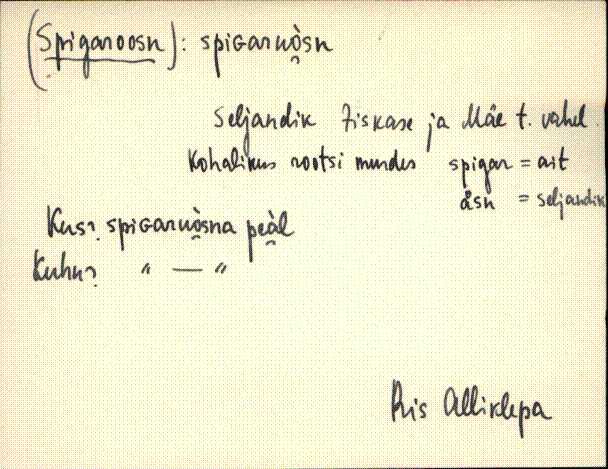 (Spigaroosn): spiGarnòsn
Seljandik Ziskase ja Mäe t. vahel.
Kohalikus rootsi murdes spigar = ait
åsn = seljandik
Kus? spiGarnòsna peàl
Kuhu? " — "
Ris Alliklepa